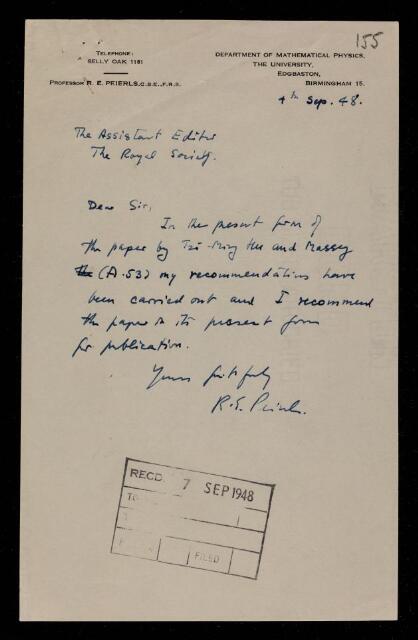 155
TELEPHONE:
SELLY OAK 1181
DEPARTMENT OF MATHEMATICAL PHYSICS,
THE UNIVERSITY,
EDGBASTON,
BIRMINGHAM 15.
PROFESSOR R. E. PEIERLS, C.B.E., F.R.S.
4th Sep. 48.
The Assistant Editor
The Royal Society.
Dear Sir,
In the present form of
the paper by Tsi-Ming Hu and Massey
(A.53) my recommendations have
been carried out and I recommend
the paper in its present form
for publication.
Yours faithfully
R.E. Peierls.
RECD. 7 SEP 1948
TO
FILED